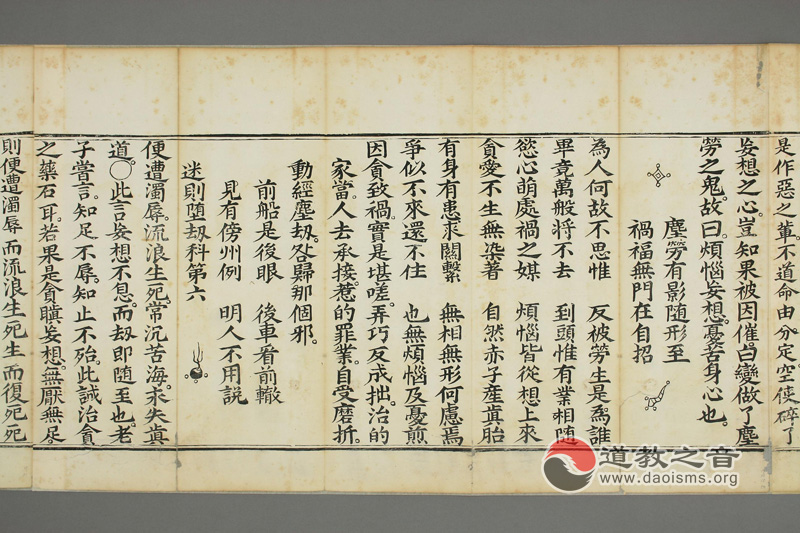 是作惡之輩不道命由分定空使碎了
妄想之心豈知果被因催臼變做了塵
勞之鬼故曰煩惱妄想憂苦身心也
塵勞有影随形至
禍福無門在自招
為人何故不思惟 反被勞生是為誰
畢竟萬般將不去 到頭惟有業相隨
慾心萌處禍之媒 煩惱皆從想上來
貪愛不生無染著 自然赤子産眞胎
有身有患求關繫 無相無形何慮焉
爭似不來還不住 也無煩惱及憂煎
因貪致禍實是堪嗟弄巧反成拙治的
家當人去承接惹的罪業自受磨折
動經塵刼各歸那個邪
前船是後眼 後車看前轍
見有傍州例 明人不用説
迷則堕刼科第六
便遭濁辱流浪生死常沉苦海永失眞
道〇此言妄想不息而刼即随至也老
子嘗言知足不辱知止不殆此誠治貪
之藥石耳若果是貪瞋妄想無厭無足
則便遭濁辱而流浪生死生而復死死
道教之音
www.daoisms.org